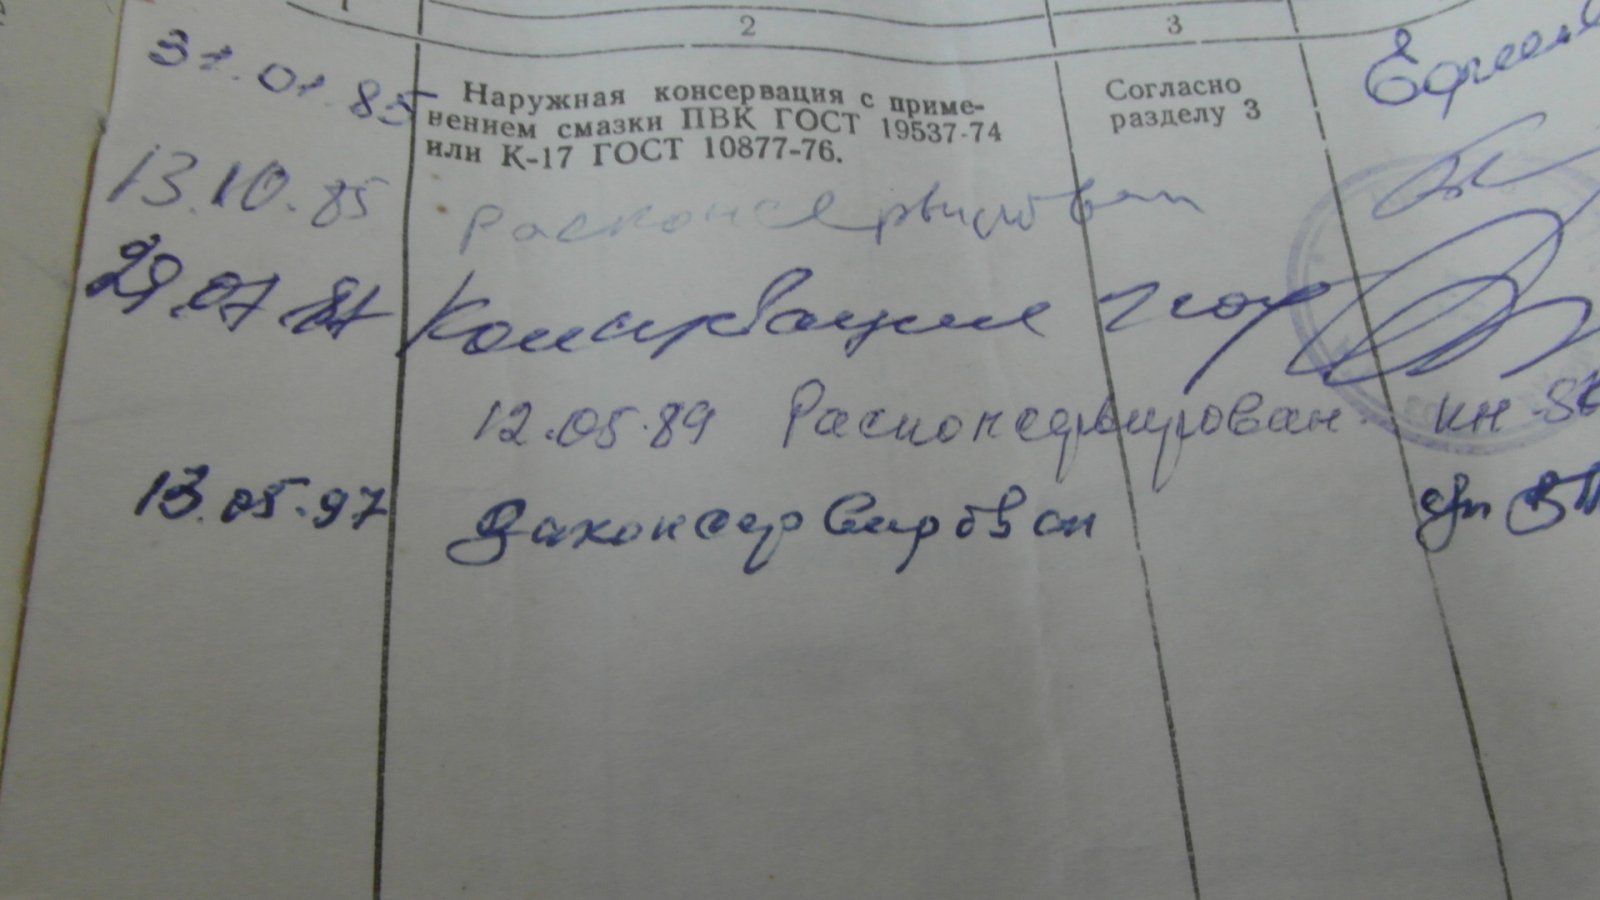 2 3
31.01.85 Наружная консервация с приме- Согласно
нением смазки ПВК ГОСТ 19537-74 разделу 3
или К-17 ГОСТ 10877-76.
13.10.85 Расконсервирован
29.07.87 Консервация
12.05.89 Расконсервирован
13.05.97 Законсервирован